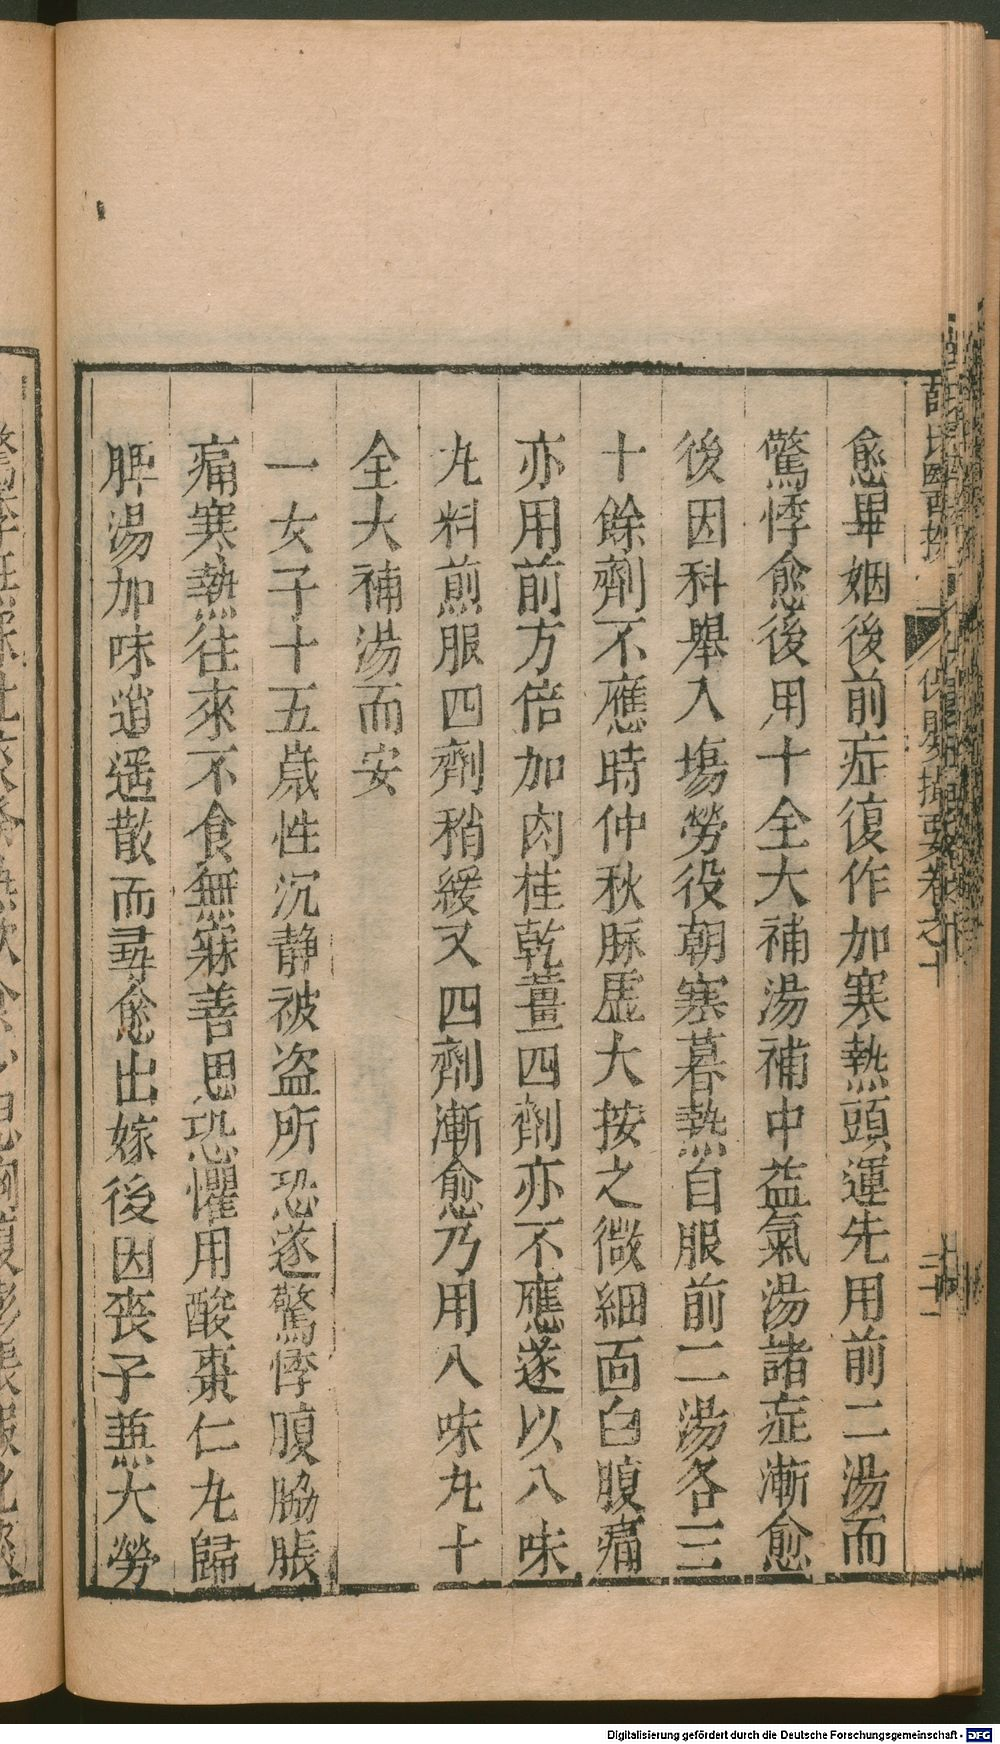 愈畢姻後前症復作加寒熱頭運先用前二湯而
驚悸愈後用十全大補湯補中益氣湯諸症漸愈
後因科舉入塲勞役朝寒暮熱自服前二湯各三
十餘劑不應時仲秋脉虛大按之微細面白腹痛
亦用前方倍加肉桂乾薑四劑亦不應遂以八味
丸料煎服四劑稍緩又四劑漸愈乃用八味丸十
全大補湯而安
一女子十五歲性沉静被盜所恐遂驚悸腹脇脹
痛寒熱往來不食無寐善思恐懼用酸棗仁丸歸
脾湯加味逍遥散而尋愈出嫁後因丧子兼大勞
保嬰撮要卷之十
Digitalisierung gefördert durch die Deutsche Forschungsgemeinschaft - DFG